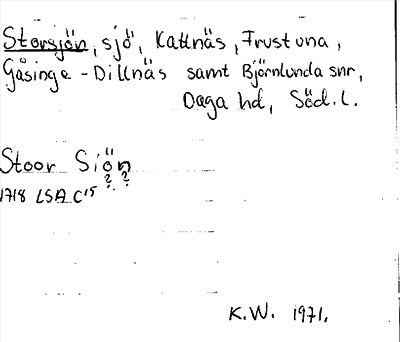 Storsjön, sjö, Kattnäs, Frustuna,
Gåsinge-Dillnäs samt Björnlunda snr,
Daga hd, Söd. l.
Stoor Siön
? ?
1718 LSA C15
K.W. 1971.